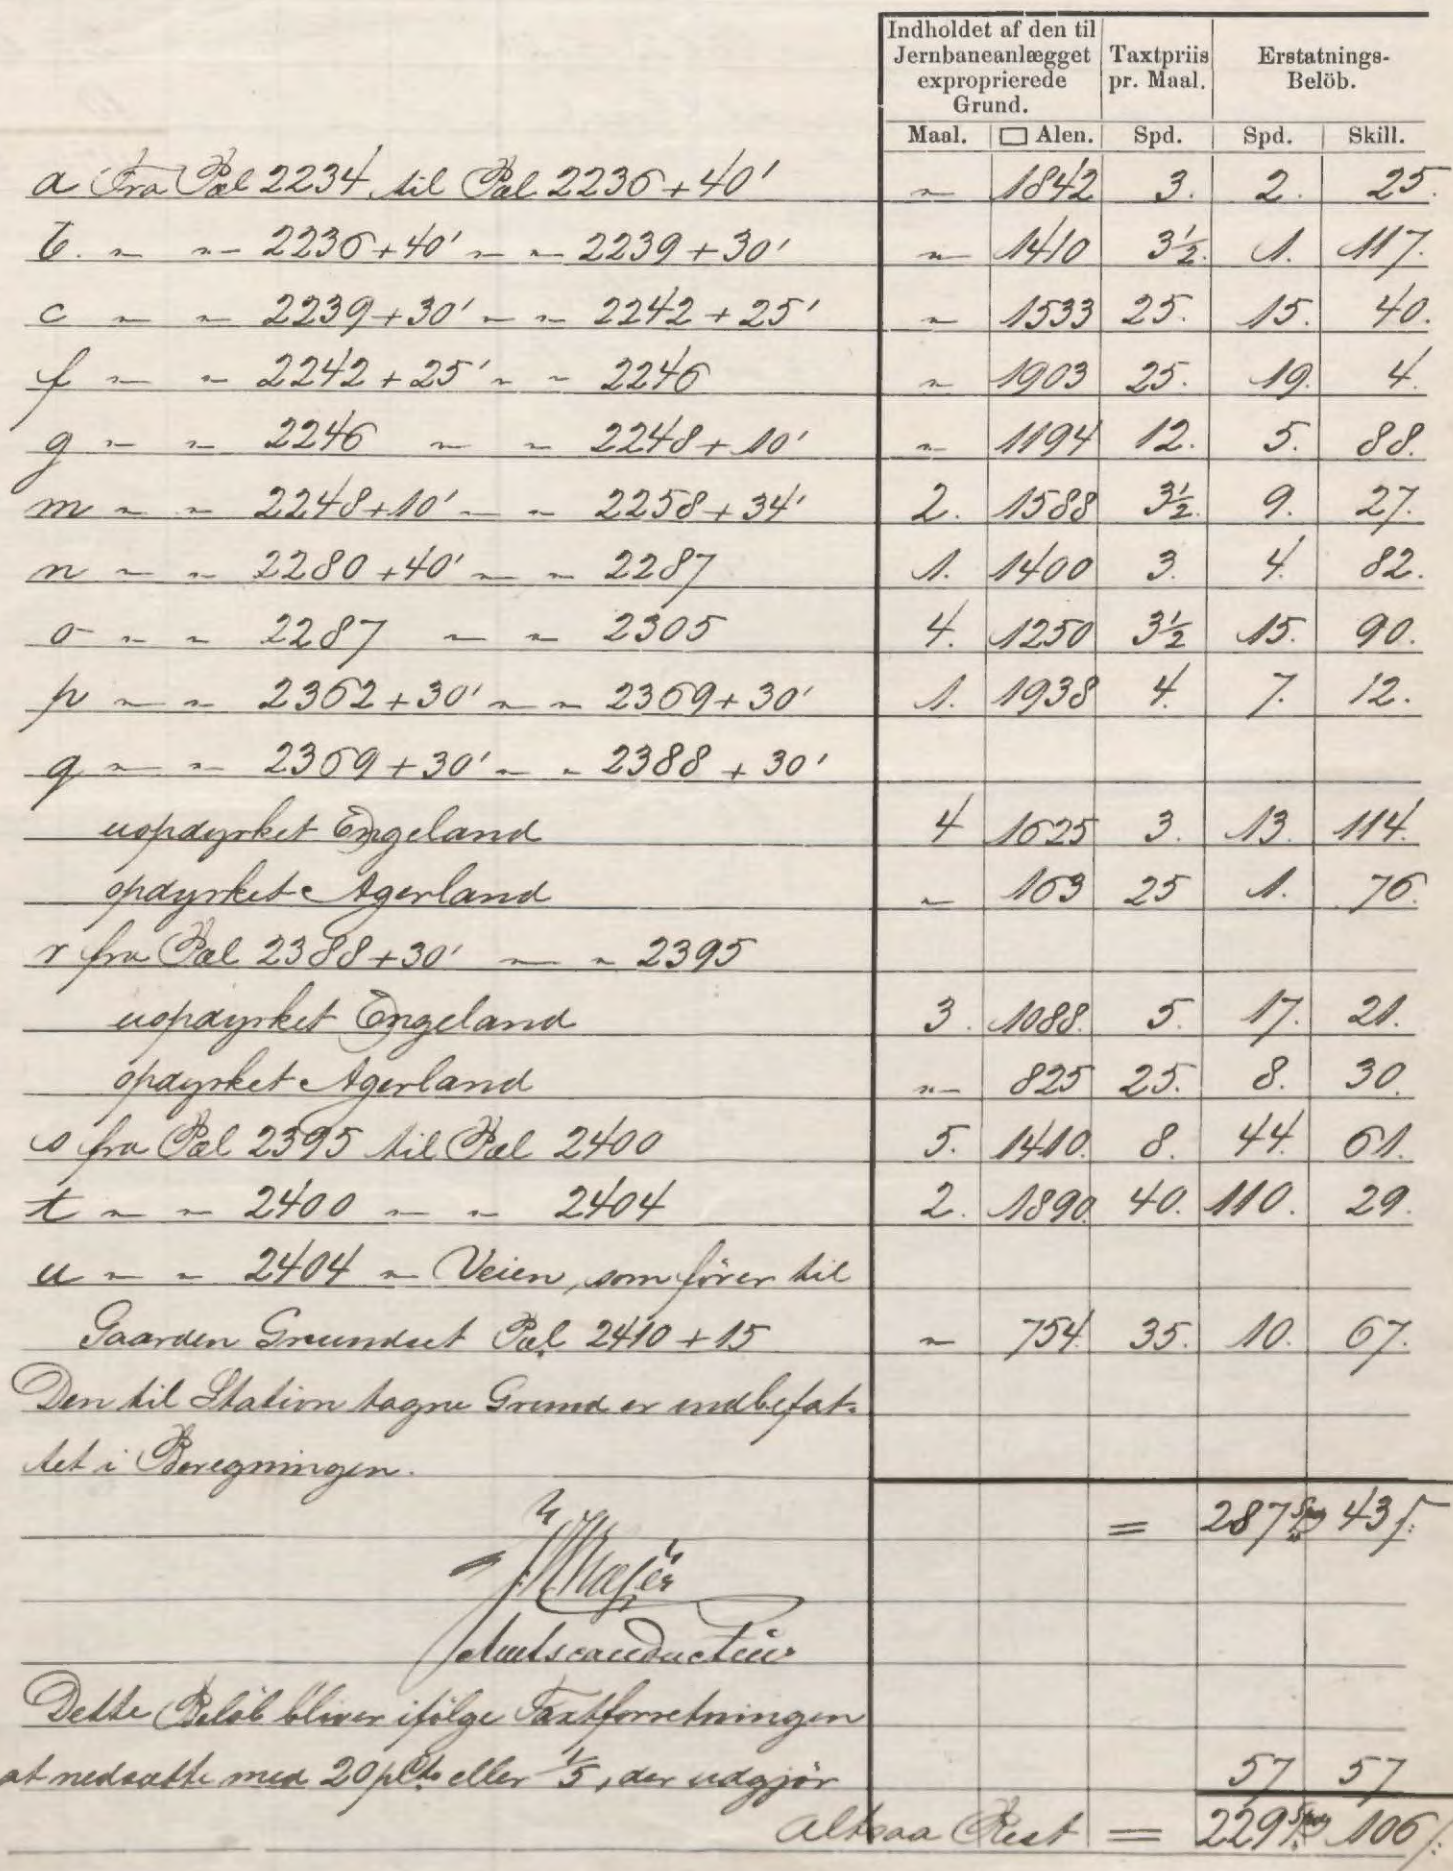 Indholdet af den til Jernbaneanlægget exproprierede Grund. Taxtpriis pr. Maal. Erstatnings-Belöb.
Maal. □ Alen. Spd. Spd. Skill.
a Fra Pæl 2234 til Pæl 2236 + 40' " 1842 3. 2. 25.
b. " " 2236 + 40' " " 2239 + 30' " 1410 3½. 1. 117.
c " " 2239 + 30' " " 2242 + 25' " 1533 25. 15. 40.
f " " 2242 + 25' " " 2246 " 1903 25. 19. 4.
g " " 2246 " " 2248 + 10' " 1194 12. 5. 88.
m " " 2248 + 10' " " 2258 + 34' 2. 1588 3½. 9. 27.
n " " 2280 + 40' " " 2287 1. 1400 3. 4. 82.
o " " 2287 " " 2305 4. 1250 3½ 15. 90.
p " " 2362 + 30' " " 2369 + 30' 1. 1938 4. 7. 12.
q " " 2369 + 30' " " 2388 + 30'
uopdyrket Engeland 4 1625 3. 13. 114.
opdyrket Agerland " 163 25 1. 76.
r fra Pæl 2388 + 30' " " 2395
uopdyrket Engeland 3. 1088. 5. 17. 21.
opdyrket Agerland " 825 25. 8. 30.
s fra Pæl 2395 til Pæl 2400 5. 1410. 8. 44. 61.
t " " 2400 " " 2404 2. 1890. 40. 110. 29.
u " " 2404 " Veien, som fører til
Gaarden Grundset Pæl 2410 + 15 " 754. 35. 10. 67.
Den til Station tagne Grund er indbefat-
tet i Beregningen.
= 287 Spd 43 ß.
Amtsconducteur
Dette Beløb bliver ifølge Taxtforretningen
at nedsætte med 20 pCt. eller 1/5, der udgjør 57 57
altsaa Rest = 229 Spd 106 ß.